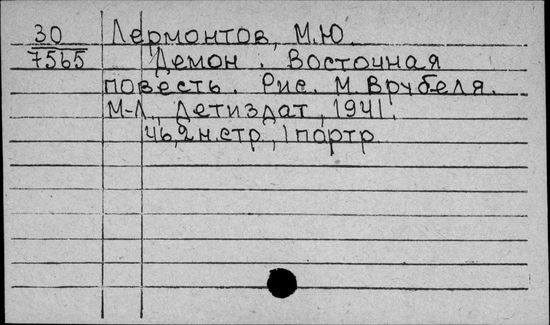 30 Лермонтов, М.Ю.
7565 Демон. Восточная
повесть. Рис. М. Врубеля.
М-Л., Детиздат, 1941.
46, 2 н. стр., 1 портр.